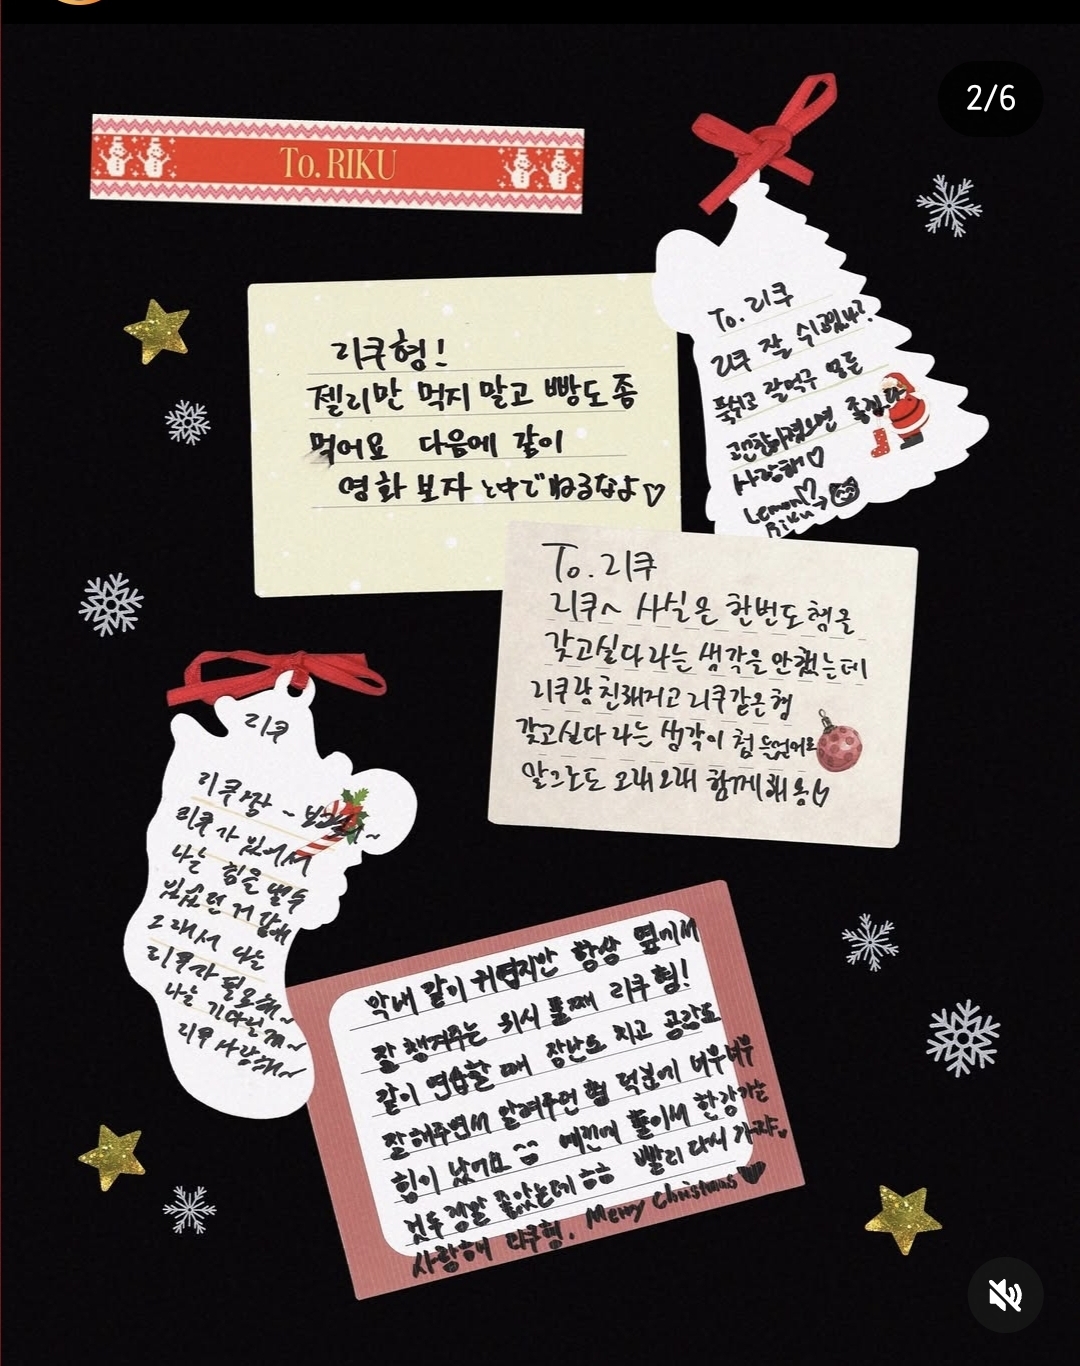 2/6
To. RIKU
To. 리쿠
리쿠 잘 쉬고있나?
푹쉬고 잘먹구 모든
괜찮아졌으면 좋겠다
사랑해♡
Lemon♡
Riku→
리쿠형!
젤리만 먹지 말고 빵도 좀
먹어요 다음에 같이
영화 보자 とけでねるなよ♡
To. 리쿠
리쿠~ 사실은 한번도 형을
갖고싶다라는 생각을 안했는데
리쿠랑 친해지고 리쿠같은 형
갖고싶다라는 생각이 첨 들었어요
앞으로도 오래오래 함께해용♡
리쿠
리쿠짱~ 보고싶어~
리쿠가 있어서
나는 힘을 낼수
있었던 거 같애
그래서 나는
리쿠가 필요해~
나는 기다릴게~
리쿠 사랑해~
막내 같이 귀엽지만 항상 옆에서
잘 챙겨주는 위시 둘째 리쿠 형!
같이 연습할 때 장난도 치고 공감도
잘해주면서 알려주던 형 덕분에 너무너무
힘이 났어요 예전에 둘이서 한강가는
것두 정말 좋았는데 ㅎㅎ 빨리 다시 가쟈♥
사랑해 리쿠형. Merry Christmas♥